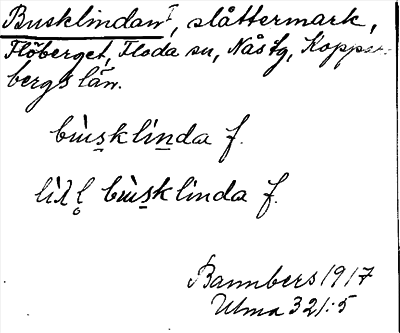 Busklindan I, slåttermark,
Flöberget, Floda sn, Nås tg, Koppar-
bergs län.
bùsklinda f.
lìll bùsklinda f.
Bannbers 1917
Ulma 321:5